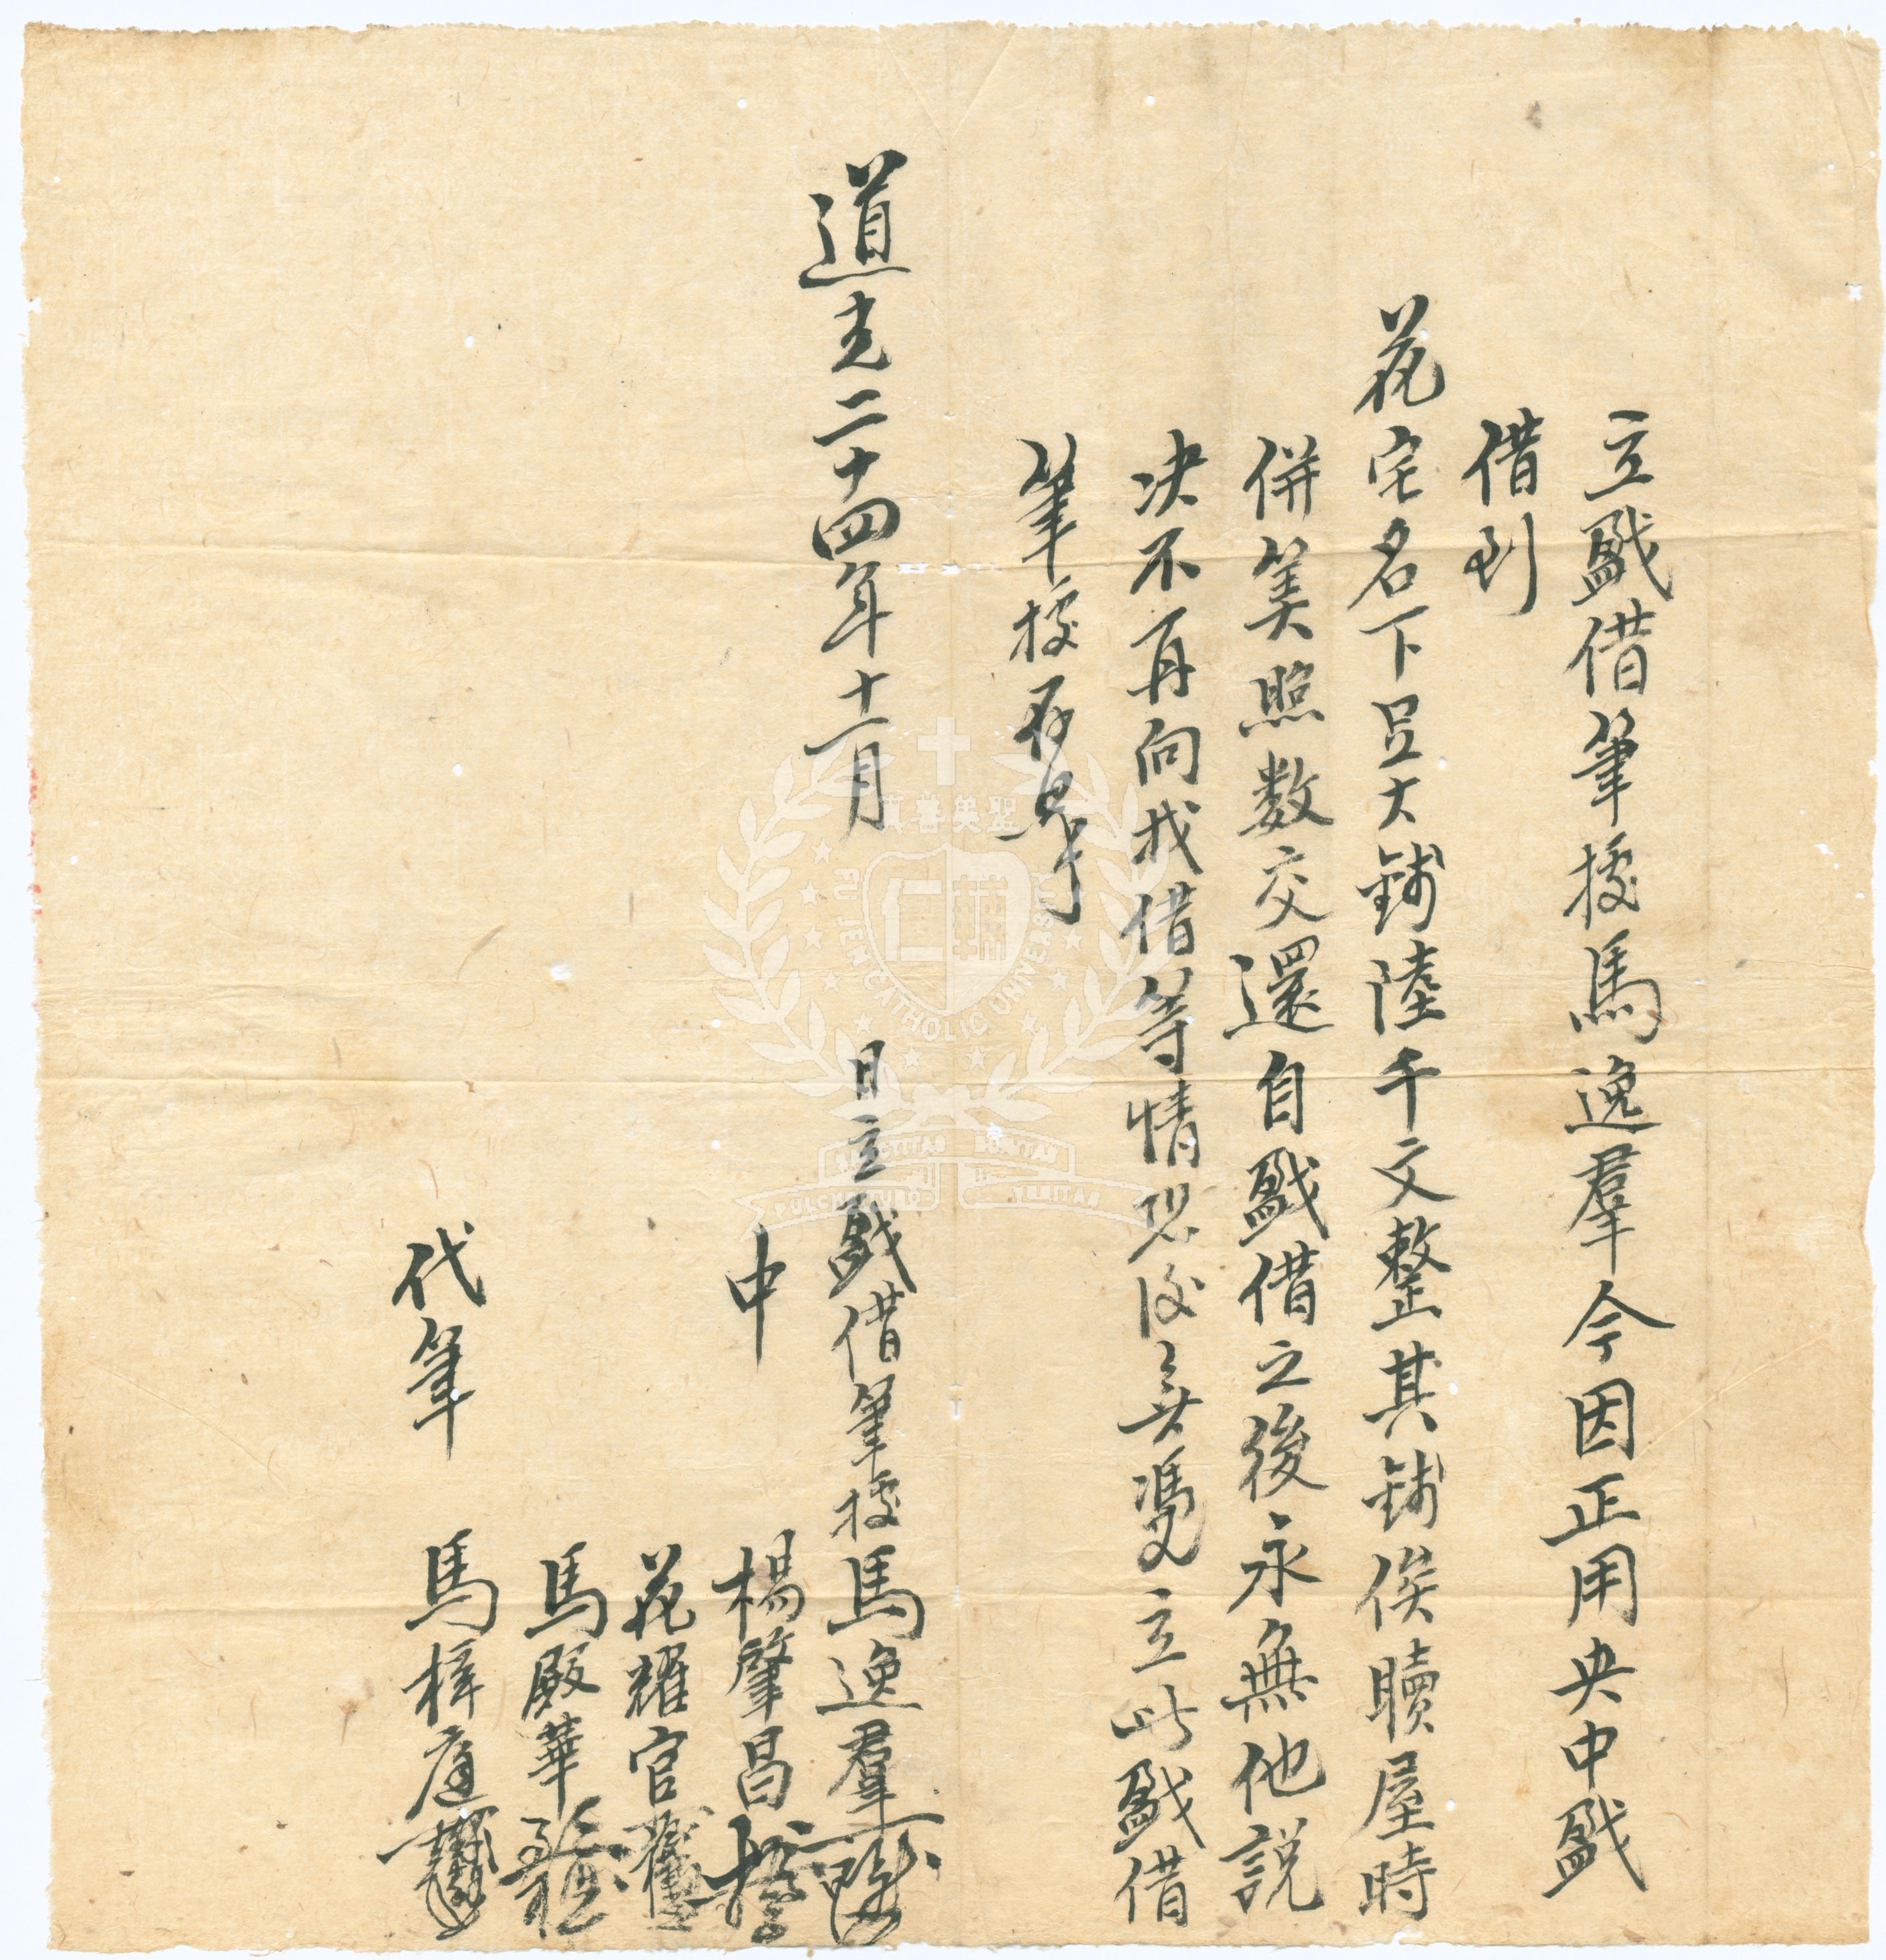 立戤借筆據馬逸羣今因正用央中戤
借到
花宅名下足大錢陸千文整其錢俟贖屋時
併算照数交還自戤借之後永無他説
决不再向找借等情恐後無憑立此戤借
筆據存照
道光二十四年十一月
日立戤借筆據馬逸羣
中 楊肇昌
花耀官
馬殿華
代筆 馬梓庭
真善美聖
FU JEN CATHOLIC UNIVERSITY
輔仁